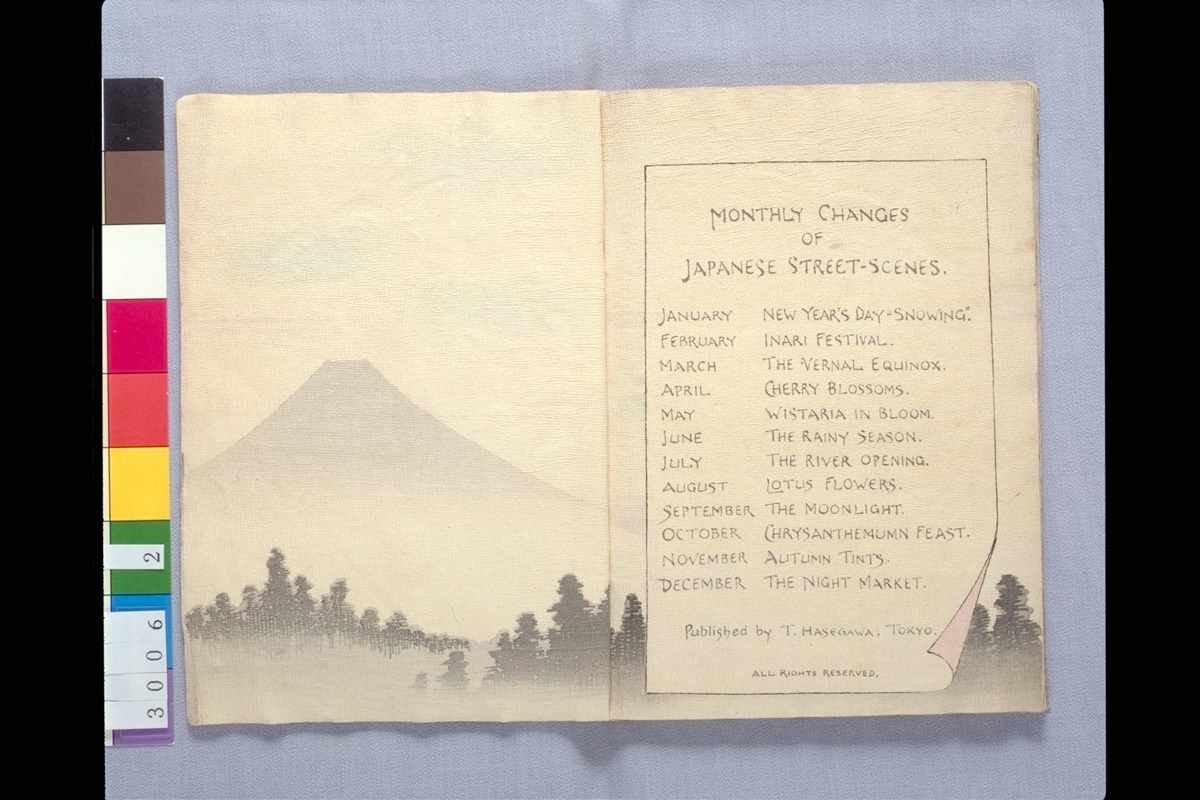 MONTHLY CHANGES
OF
JAPANESE STREET-SCENES.
JANUARY NEW YEAR'S DAY "SNOWING".
FEBRUARY INARI FESTIVAL.
MARCH THE VERNAL EQUINOX.
APRIL CHERRY BLOSSOMS.
MAY WISTARIA IN BLOOM.
JUNE THE RAINY SEASON.
JULY THE RIVER OPENING.
AUGUST LOTUS FLOWERS.
SEPTEMBER THE MOONLIGHT.
OCTOBER CHRYSANTHEMUMN FEAST.
NOVEMBER AUTUMN TINTS.
DECEMBER THE NIGHT MARKET.
Published by T. HASEGAWA, TOKYO.
ALL RIGHTS RESERVED.
3006 2